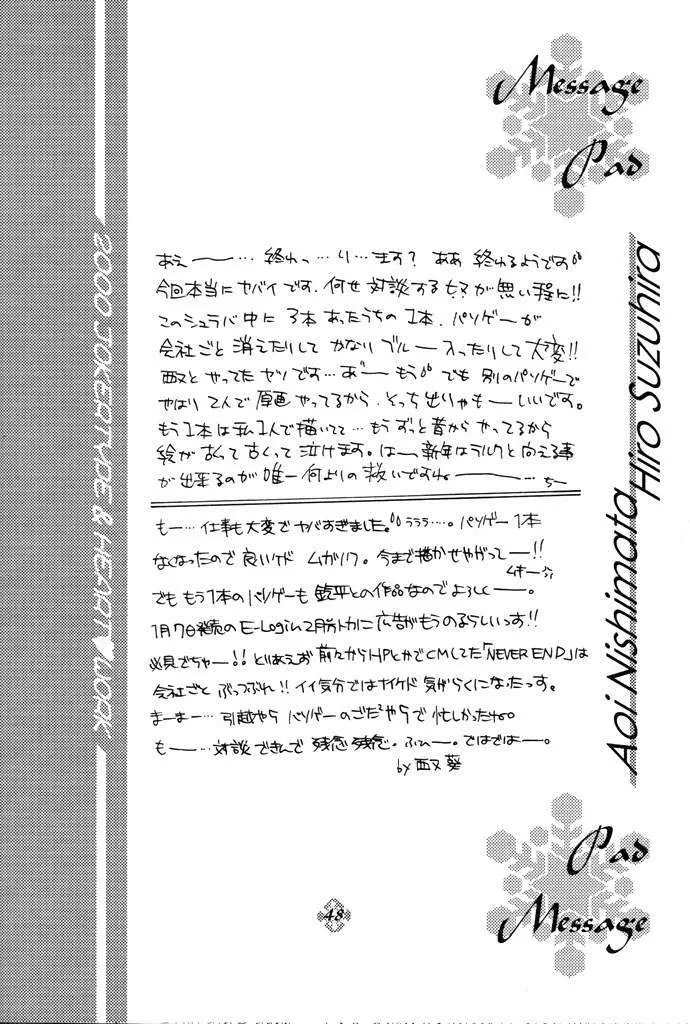 Message
Pad
あえー…終わっ…り…ます？ああ 終わるようです°°
今回本当にヤバイです．何せ 対談するヒマが無い程に!!
このシュラバ中に 3本あったうちの 1本．パソゲーが
会社ごと 消えたりして かなりブルー入ったりして 大変!!
西又と やってたヤツです…あ゛ー もう°°でも 別のパソゲーで
やはり 2人で 原画 やってるから．そっち出りゃもーいいです。
もう1本は 私1人で描いてて…もう ずっと昔から やってるから
絵が 古くて 古くって 泣けます。はー、新年はラルクと 向える事
が出来るのが 唯一 何よりの 救いですねー…
もー…仕事も大変で ヤバすぎました。°°ううう…。パソゲー1本
なくなったので 良いケド ムカツク。今まで描かせやがってー!!
ムキー
でも もう1本のパソゲーも 鈴平との作品なのでよろしくー。
1月7日発売の E-Login 2月号トカに 広告がもうのるらしいっす!!
必見でちゃー!! とりあえず 前々からHPとかでCMしてた「NEVER END」は
会社ごと ぶっつぶれ!! イイ気分ではナイケド 気がらくになたっす。
まーまー…引越やら パソゲーのごたごやらで 忙しかったね。
もー…対談できんで 残念 残念。ふひー。ではではー。
by 西又 葵
Hiro Suzuhira
Aoi Nishimata
2000 JOKERTYPE & HEART♥WORK
Pad
Message
48